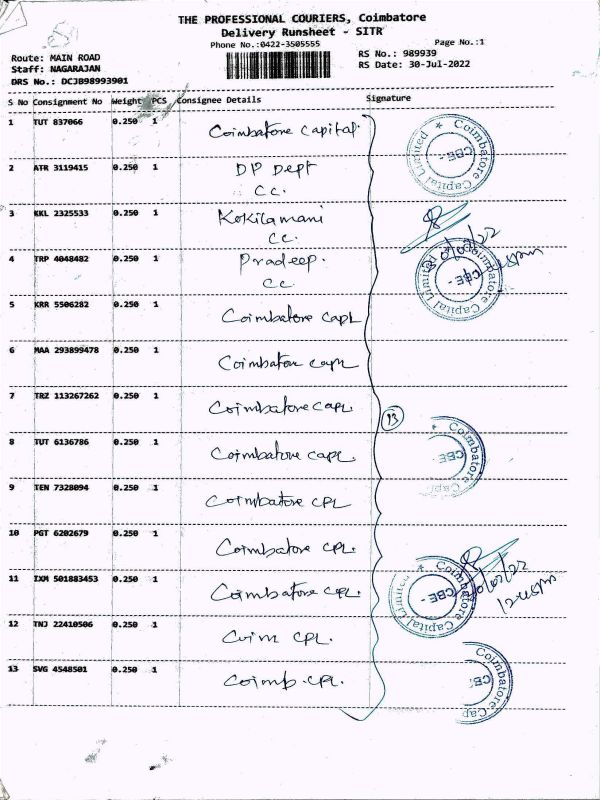 THE PROFESSIONAL COURIERS, Coimbatore
Delivery Runsheet - SITR
Phone No.:0422-3505555
Page No.:1
Route: MAIN ROAD
RS No.: 989939
Staff: NAGARAJAN
RS Date: 30-Jul-2022
DRS No.: DCJB98993901
S No Consignment No Weight PCS Consignee Details Signature
1 TUT 837066 0.250 1 Coimbatore Capital.
2 ATR 3119415 0.250 1 DP Dept
CC.
3 KKL 2325533 0.250 1 Kokilamani
CC.
4 TRP 4048482 0.250 1 Pradeep.
CC
5 KRR 5506282 0.250 1 Coimbatore CapL
6 MAA 293899478 0.250 1 Coimbatore
7 TRZ 113267262 0.250 1 Coimbatore CapL
8 TUT 6136786 0.250 1 Coimbatore CapL.
9 TEN 7328094 0.250 1 Coimbatore CPL
10 PGT 6202679 0.250 1 Coimbatore CPL.
11 IXM 501883453 0.250 1 Coimbatore CPL.
12 TNJ 22410506 0.250 1 Coim CPL.
13 SVG 4548501 0.250 1 Coimb. CPL.
13
Coimbatore Capital Limited
CBE -
Coimbatore Capital Limited
CBE -
Coimbatore Capital
CBE
Coimbatore Capital Limited
CBE -
Coimbatore Cap
CBE